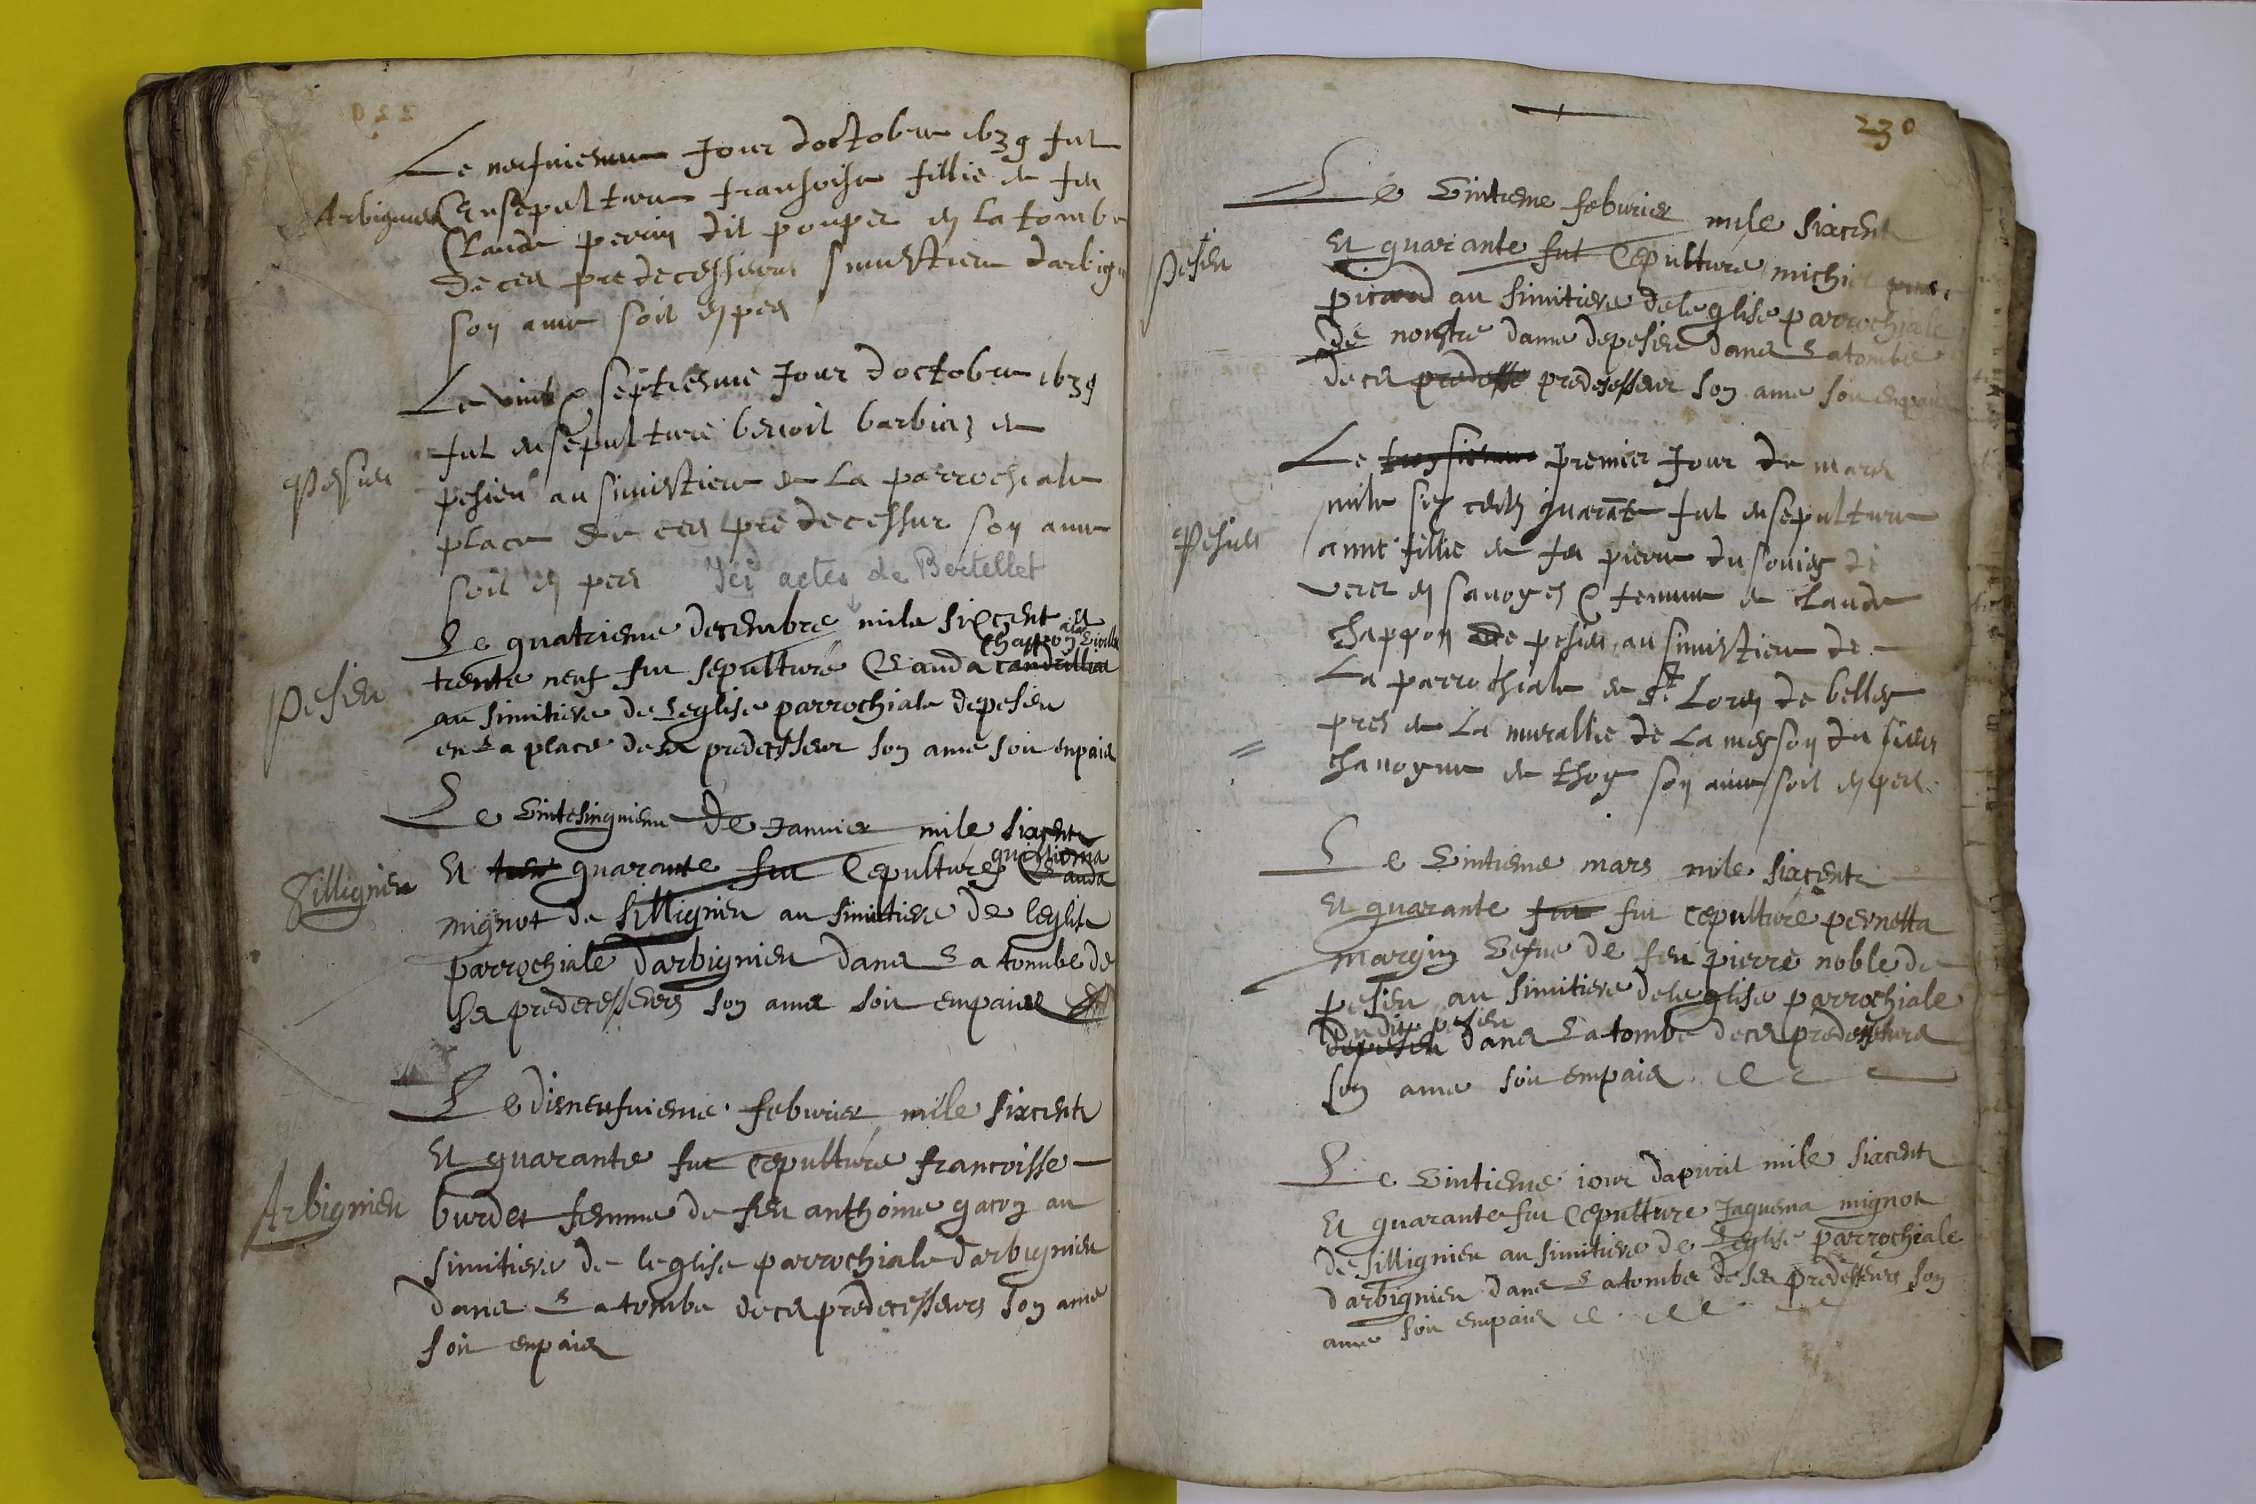 Le neufuiesme Jour doctobre 1639 fut
Arbignieu
Ensepulture fransoise fillie de feu
Claude perrin dit poupet en la tombe
de ces predecesseurs simistiere darbigni
son ame soit en pes
Le vint & septiesme Jour doctobre 1639
Pesieu
fut ensepulture benoit barbier de
pesieu au simistiere de La parrochiale
place de ces predecessur son ame
soit en pes Ici actes de Bertellet
Le quatrieme decembre mile sixcent et
chappon
Pesieu
trente neuf fut sepulturé Clauda
au simitiere de Leglise parrochiale depesieu
en La place de ses predecesseur son ame soit enpaix
Le Vintesinquieme De Janvier mile sixcent
Sillignieu
Et quarante fut Cepulturé
Clauda
mignot de sillignieu au simitiere de leglise
parrochiale Darbignieu dans La tombe de
ses predecesseurs son ame soit empaix
Le disneufuieme feburier mile sixcent
Arbignieu
Et quarante fut cepulturé francoisse
burdet femme de feu anthoine gacon au
simitiere de leglise parrochiale darbignieu
dans La tombe de ces predecesseurs son ame
soit enpaix
230
Le Vintieme feburier mile sixcent
Pesieu
Et quarante fut Cepulturé michie
picaud au simitiere deleglise parrochiale
de nostre dame depesieu dans La tombe
de ces predesse predesesseur son ame soit enpaix
Le troysiesme premier Jour de mars
Pesieu
mile six cents quarante fut ensepulture
anne fillie de feu pierre du de
en savoye & femme de claude
chappon de pesieu au simistiere de
La parrochiale de St Lorens de belley
pres de La murallie de La meyson du sieur
chanoyne de thoy son ame soit en pes
Le Vintieme mars mile sixcent
Et quarante fut fut cepulturé pernetta
margin Vefue de feu pierre noble de
pesieu au simitiere deleglise parrochiale
dudit pesieu
depesieu dans La tombe de ces predesseurs
son ame soit empaix
Le Vintieme iour dapuril mile sixcent
Et quarante fut Cepulture Jaquema mignot
de sillignieu au simitiere de Leglise parrochiale
darbignieu dans La tombe de ses predesseurs son
ame soit empaix